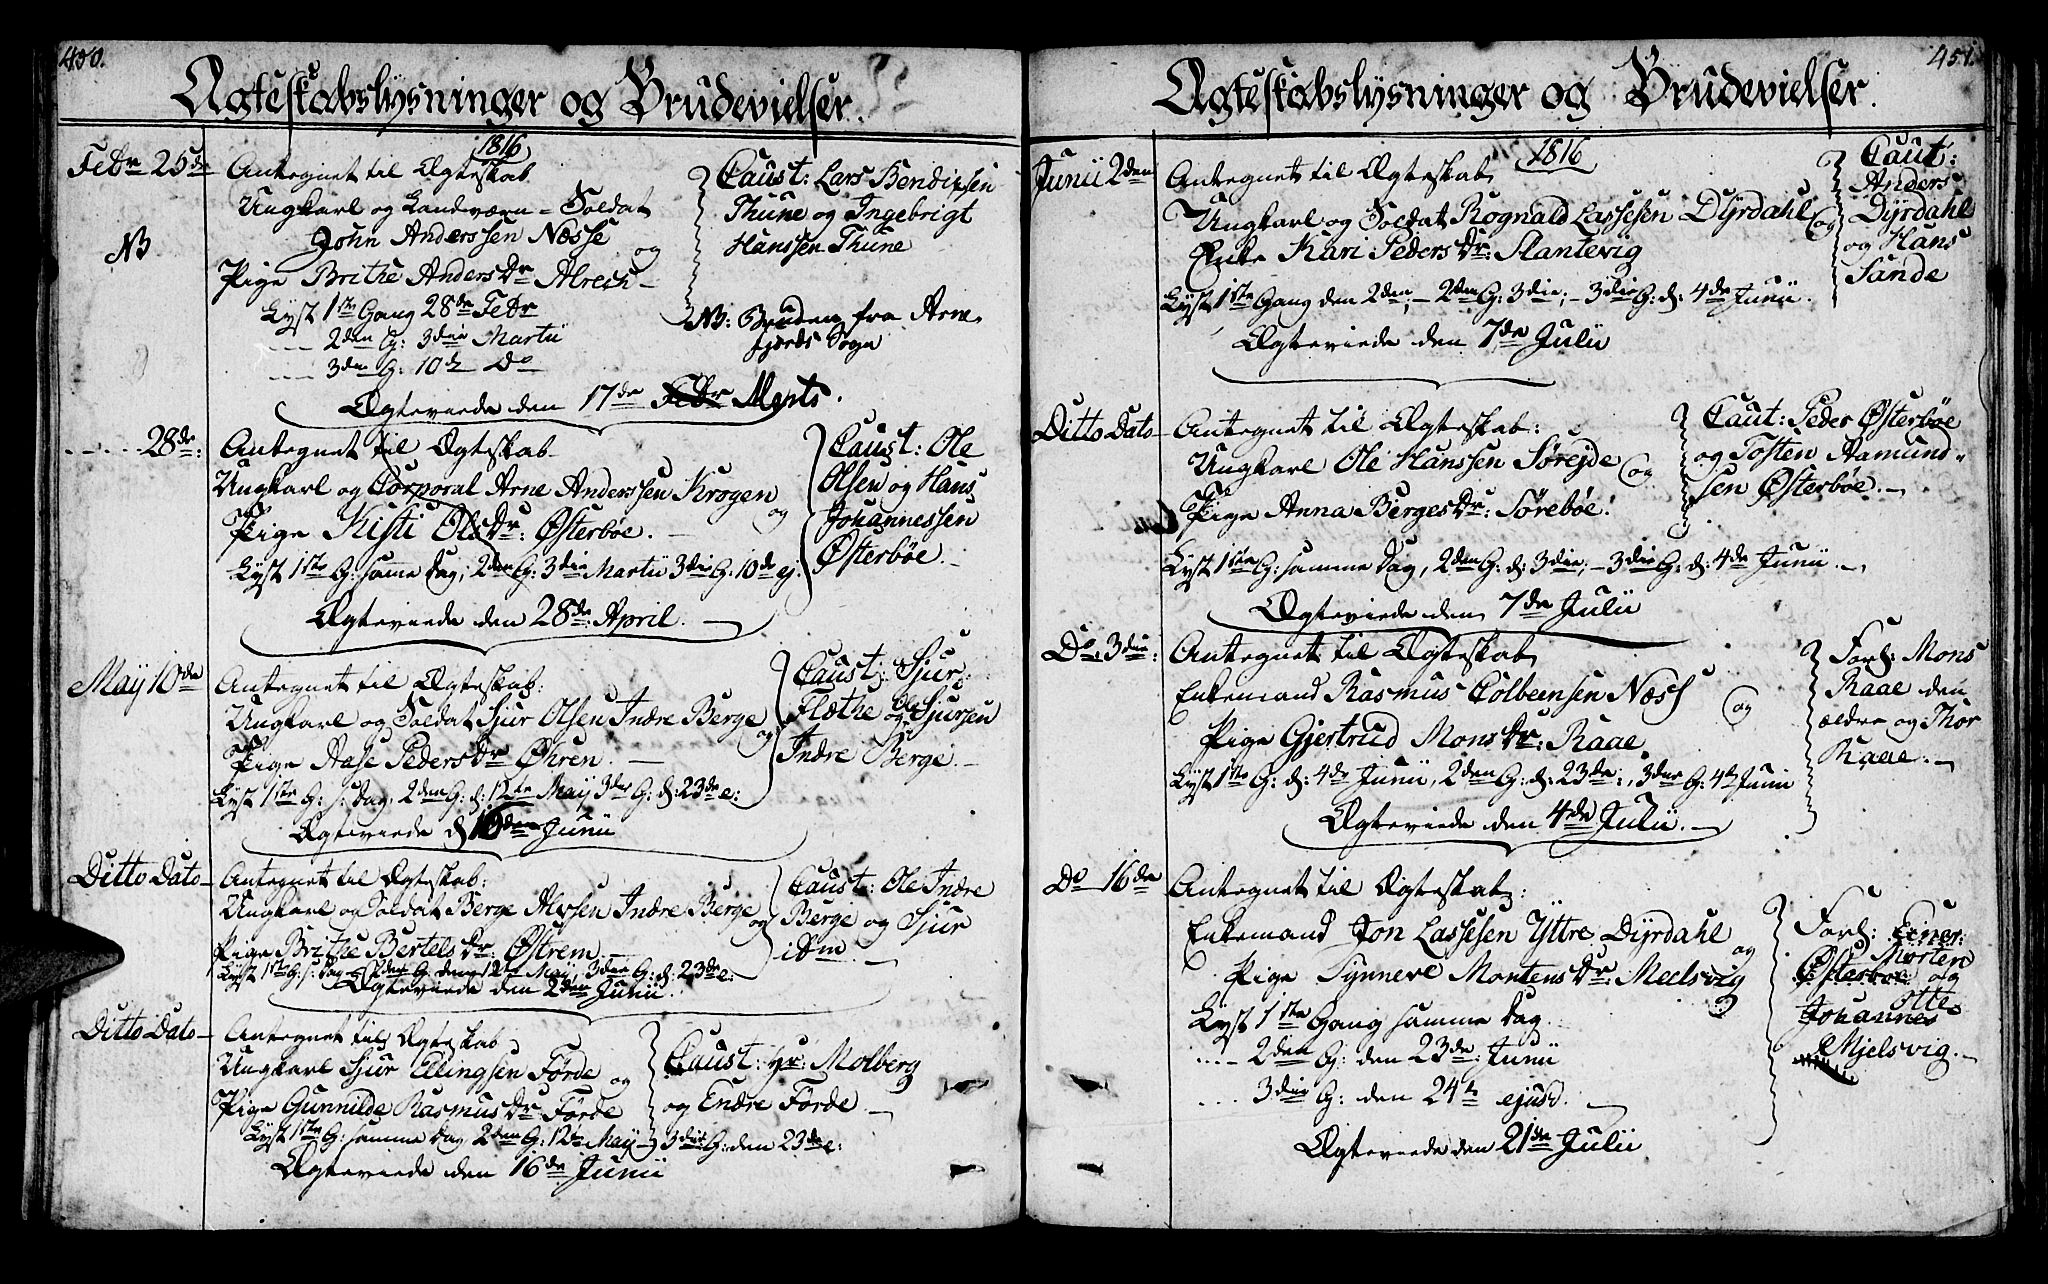 450.
Ægteskabslysninger og Brudevielser.
1816
Febr 25de
Antegnet til Ægteskab
Ungkarl og Landværn-Soldat
John Anderssen Næsse
og
NB
Pige Brithe Anders Dr Afrech
Lyst 1ste Gang 28de Febr
2den G: 3die Martii
3den G: 10de Do
Ægteviede den 17de Febr Marts.
Caust: Lars Bendixsen
Thune og Ingebrigt
Hanssen Thune
NB: Bruden fra Arne-
fjords Sogn
28de:
Antegnet til Ægteskab
Ungkarl og Corporal Arne Anderssen Krogen
og
Pige Kisti Ols Dr: Østerbøe.
Lyst 1ste G: samme Dag, 2den G: 3die Martii 3die G: 10de ej:
Ægteviede den 28de April.
Caust: Ole
Olsen og Hans
Johannessen
Østerbøe.
May 10de
Antegnet til Ægteskab:
Ungkarl og Soldat Sjur Olsen Indre Berge
og
Pige Aase Peders Dr Øhren.
Lyst 1ste G: s: Dag, 2den G: d: 12te May 3die G: d: 23de e:
Ægteviede d 16den Junii
Caust: Sjur
Flæthe og Ole Sjursen
Indre Berge.
Ditto Dato
Antegnet til Ægteskab:
Ungkarl og Soldat Berge Alvsen Indre Berge
og
Pige Brithe Bertels Dr: Østrem
Lyst 1ste G: s: Dag 2den G: den 12te May, 3die G: d: 23de e:
Ægteviede den 2den Junii.
Caust: Ole Indre
Berge og Sjur
ibm
Ditto Dato
Antegnet til Ægteskab
Ungkarl Sjur Ellingsen Førde
og
Pige Gunnilde Rasmus Dr: Førde
Lyst 1ste G: samme Dag 2den G: 12te May 3die G: den 23de e:
Ægteviede den 16de Junii
Caust: yr: Molberg
og Endre Førde
451.
Ægteskabslysninger og Brudevielser.
1816
Junii 2den
Antegnet til Ægteskab
Ungkarl og Soldat Rognald Lassesen Dyrdahl
og
Enke Kari Peders Dr: Slantevig
Lyst 1ste Gang den 2den; 2den G: 3die; 3die G: d: 4de Junii.
Ægteviede den 7de Julii
Caut:
Anders
Dyrdahl
og Hans
Sande
Ditto Dato
Antegnet til Ægteskab:
Ungkarl Ole Hanssen Sørejde
og
Pige Anna Berges Dr: Sørebøe.
Lyst 1ste G: samme Dag, 2den G: d: 3die; 3die G: d: 4de Junii.
Ægteviede den 7de Julii
Caut: Peder Østerbøe
og Tosten Aamund-
sen Østerbøe.
Do 3die:
Antegnet til Ægteskab
Enkemand Rasmus Colbeensen Næss
og
Pige Gjertrud Mons Dr: Raae.
Lyst 1ste G: d: 4de Junii, 2den G: d: 23de:, 3die G: 4de Junii
Ægteviede den 4de Julii.
Forl: Mons
Raae den
ældre og Thor
Raae.
Do 16de
Antegnet til Ægteskab:
Enkemand Jon Lassesen Yttre Dyrdahl
og
Pige Synneve Mortens Dr: Meelsvig
Lyst 1ste Gang samme Dag
2den G: den 23de: Junii
3die G: den 24de ejusd.
Ægteviede den 21de Julii
Forl: Einer
Morten
Østerbøe og
Otte
Johannes
Mjelsvig.